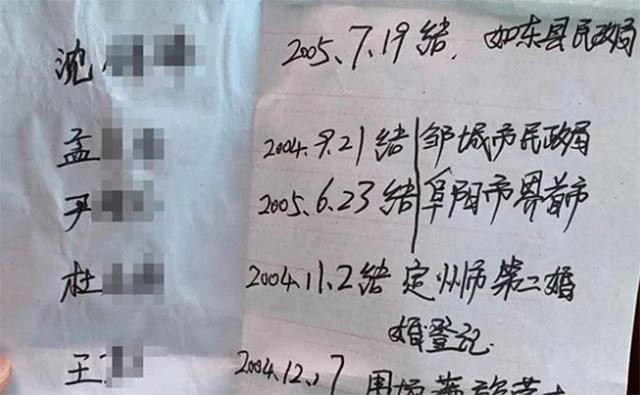 沈 2005.7.19 结, 如东县民政局
孟 2004.9.21 结 邹城市民政局
尹 2005.6.23 结 阜阳市界首市
杜 2004.11.2 结 定州市第二婚
婚登记
王 2004.12.17 围场满